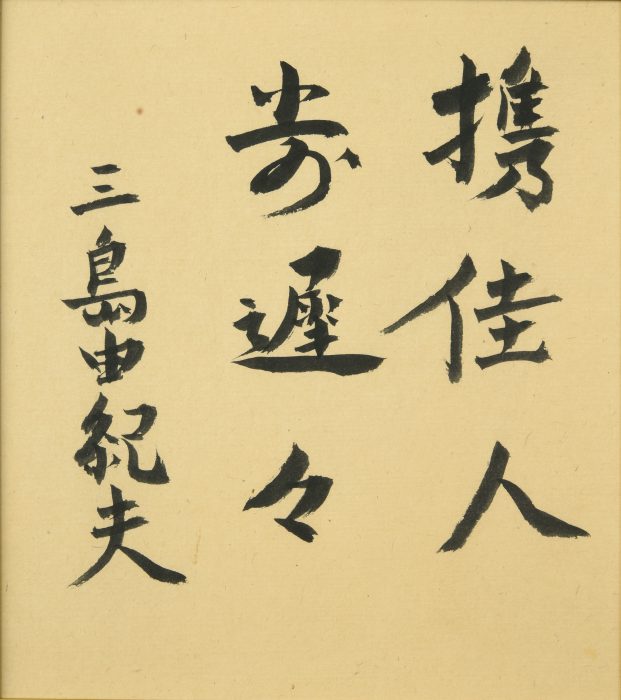 携佳人
步遲々
三島由紀夫